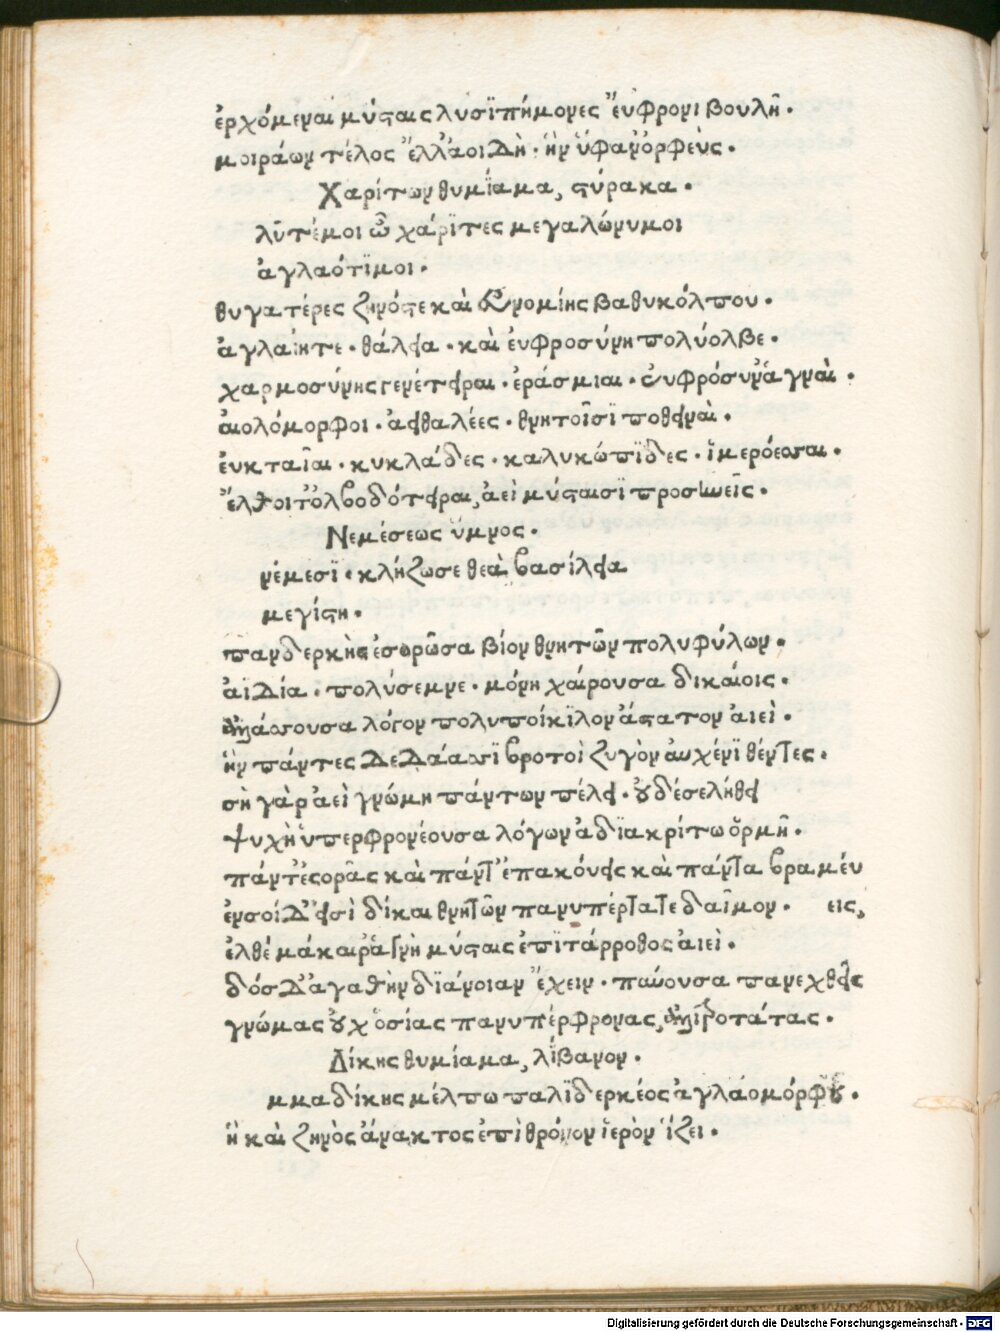 ἐρχόμεναι μύσταις λυσϊπήμονες ἔυφρονι βουλῇ.
μοιράων τέλος ἔλλἀοι δὴ. ἣν ὕφαν ὀρφεὺς.
Χαρίτων θυμίαμα, στύρακα.
λῦτέμοι ὦ χάρϊτες μεγαλώνυμοι
ἀγλαότϊμοι.
θυγατέρες ζηνόστε καὶ ἐυνομίης βαθυκόλπου.
ἀγλαΐητε. θάλεια. καὶ ἐυφροσύνη πολύολβε.
χαρμοσύνης γενέτειραι. ἐράσμιαι. ἐυφρόσυνἁ γναὶ.
ἀιολόμορφοι. ἀειθαλέες. θνητοῖσϊ ποθειναὶ.
ἐυκταῖαι. κυκλάδες. καλυκώπϊδες. ἱμερόεσσαι.
ἔλθοιτ ὀλβοδότειραι, ἀεὶ μύσταισϊ προσηνεῖς.
Νεμέσεως ὕμνος.
νέμεσϊ. κλήζωσε θεὰ βασίλεια
μεγίστη.
πανδερκὴς ἐσορῶσα βίον θνητῶν πολυφύλων.
ἀϊδία. πολύσεμνε. μόνη χαίρουσα δικαίοις.
ἀλλάσσουσα λόγον πολυποίκϊλον ἄστατον ἀιεὶ.
ἣν πάντες δεδάασϊ βροτοὶ ζυγὸν ἀυχένϊ θέντες.
σὴ γὰρ ἀεὶ γνώμη πάντων πέλει. οὐδέσελήθει
ψυχὴ ὑπερφρονέουσα λόγων ἀδϊακρίτω ὁρμῇ.
πάντ ἐσορᾶς καὶ πάντ ἐπακούεις καὶ πάντα βραμέυ
ἐνσοὶ δ εἰσὶ δίκαι θνητῶν πανυπέρτατε δαῖμον. εις,
ἐλθέ μάκαιρ ἁγνὴ μύσταις ἐπϊτάρροθος ἀιεὶ.
δόσ δ ἀγαθὴν δϊάνοιαν ἔχειν. παύουσα πανεχθεῖς
γνώμας οὐχ ὁσίας πανυπέρφρονας, ἀλλοπροτάτας.
Δίκης θυμίαμα, λίβανον.
μμα δίκης μέλπω παλϊδερκέος ἀγλἀομόρφου.
ἣ καὶ ζηνὸς ἄνακτος ἐπὶ θρόνον ἱερὸν ἵζει.
Digitalisierung gefördert durch die Deutsche Forschungsgemeinschaft - DFG